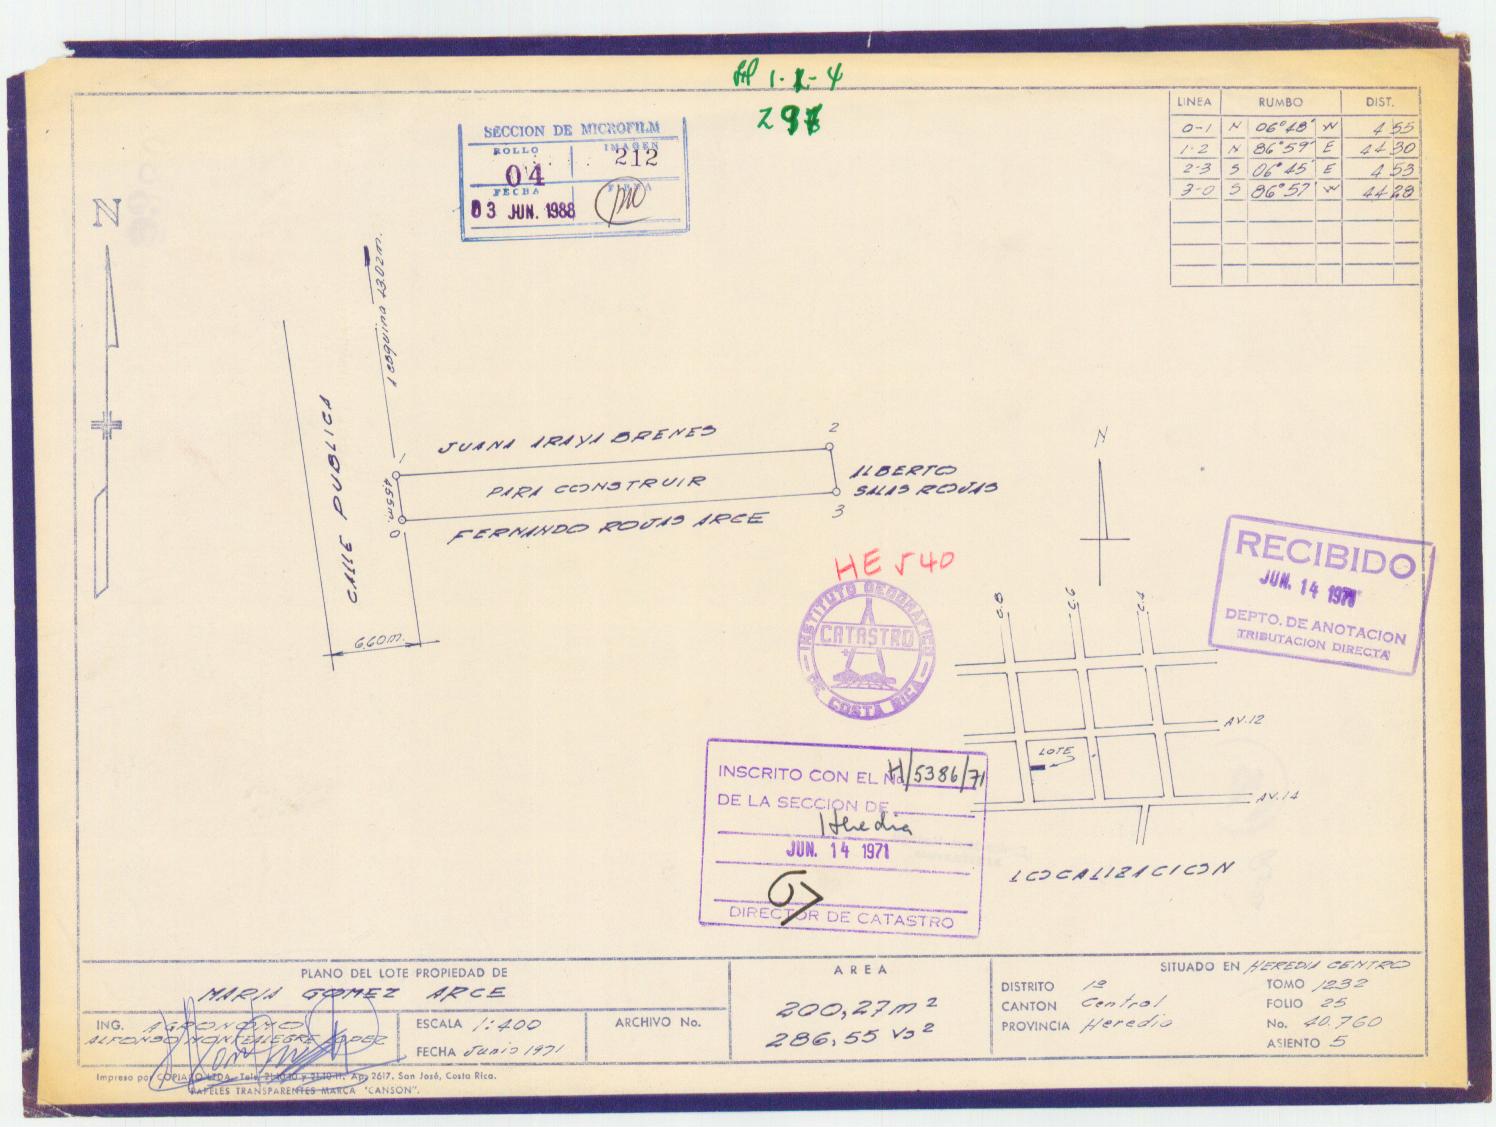 1-1-4
297
LINEA RUMBO DIST.
0-1 N 06°48' W 4 55
1-2 N 86°59' E 44 30
2-3 S 06°45' E 4 53
3-0 S 86°57' W 44 28
SECCION DE MICROFILM
ROLLO IMAGEN
04 212
FECHA FIRMA
03 JUN. 1988
N
A ESQUINA 23.02m.
CALLE PUBLICA
JUANA ARAYA BRENES
1
2
4.55m.
PARA CONSTRUIR
ALBERTO
SALAS ROJAS
0
3
FERNANDO ROJAS ARCE
6.60m.
HE 540
INSTITUTO GEOGRAFICO
CATASTRO
DE COSTA RICA
N
RECIBIDO
JUN. 14 1971
DEPTO. DE ANOTACION
TRIBUTACION DIRECTA
C.8 C.6 C.4
AV.12
LOTE
AV.14
LOCALIZACION
INSCRITO CON EL No H/5386/71
DE LA SECCION DE
Heredia
JUN. 14 1971
DIRECTOR DE CATASTRO
PLANO DEL LOTE PROPIEDAD DE
MARIA GOMEZ ARCE
ING. AGRONOMO
ALFONSO MONTEALEGRE LOPEZ
ESCALA 1:400
FECHA Junio 1971
ARCHIVO No.
AREA
200,27m²
286,55 vs²
SITUADO EN HEREDIA CENTRO
DISTRITO 1º
CANTON Central
PROVINCIA Heredia
TOMO 1232
FOLIO 25
No. 40.760
ASIENTO 5
Impreso por COPIACO LTDA. Tels. 21-10-10 y 21-10-11, Ap. 2617, San José, Costa Rica.
PAPELES TRANSPARENTES MARCA "CANSON".